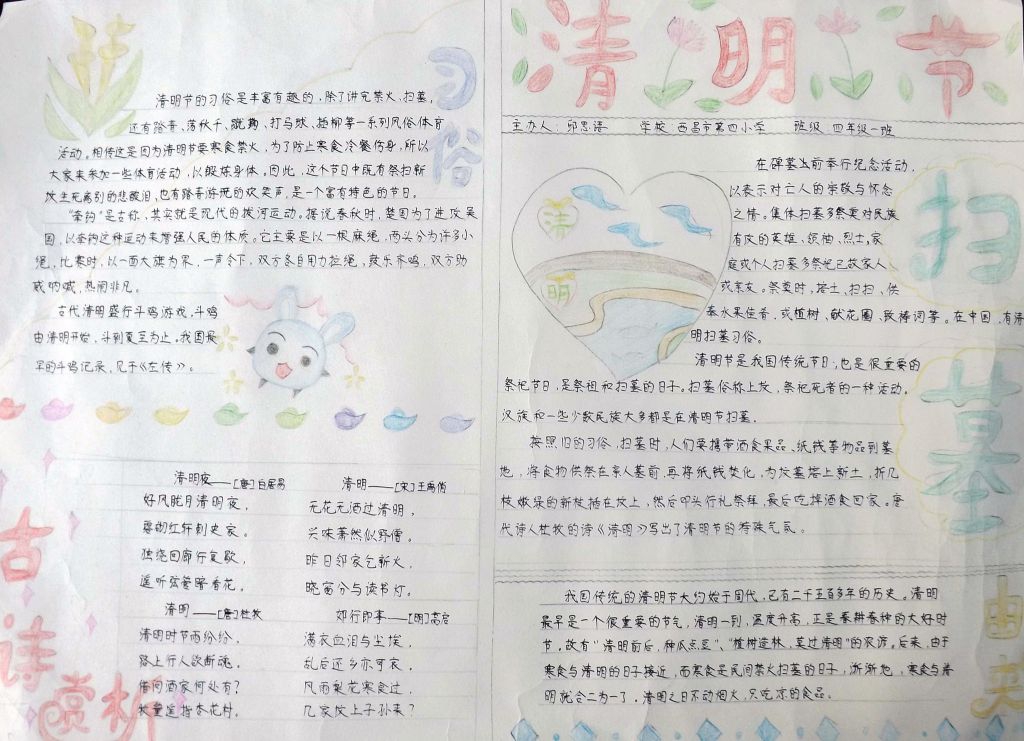 清明节
主办人：邱思语 学校：西昌市第四小学 班级：四年级一班
扫墓
在碑墓当前奉行纪念活动，
以表示对亡人的崇敬与怀念
之情。集体扫墓多祭奠对民族
有庆的英雄、领袖、烈士，家
庭或个人扫墓多祭祀已故家人
或亲友。祭奠时，培土、扫扫、供
奉水果佳香，或植树、献花圈、致祷词等。在中国，有清
明扫墓习俗。
清明节是我国传统节日，也是很重要的
祭祀节日，是祭祖和扫墓的日子。扫墓俗称上坟，祭祀死者的一种活动。
汉族和一些少数民族大多都是在清明节扫墓。
按照旧的习俗，扫墓时，人们要携带酒食果品、纸钱等物品到墓
地，将食物供祭在亲人墓前，再将纸钱焚化，为坟墓培上新土，折几
枝嫩绿的新枝插在坟上，然后叩头行礼祭拜，最后吃掉酒食回家。唐
代诗人杜牧的诗《清明》写出了清明节的特殊气氛。
清
明
由来
我国传统的清明节大约始于周代，已有二千五百多年的历史。清明
最早是一个很重要的节气，清明一到，温度升高，正是春耕春种的大好时
节，故有“清明前后，种瓜点豆”、“植树造林，莫过清明”的农谚。后来，由于
寒食与清明的日子接近，而寒食是民间禁火扫墓的日子，渐渐地，寒食与清
明就合二为一了，清明之日不动烟火，只吃凉的食品。
习俗
清明节的习俗是丰富有趣的，除了讲究禁火、扫墓，
还有踏青、荡秋千、蹴鞠、打马球、插柳等一系列风俗体育
活动。相传这是因为清明节要寒食禁火，为了防止寒食冷餐伤身，所以
大家来参加一些体育活动，以锻炼身体。因此，这个节日中既有祭扫新
坟生死离别的悲酸泪，也有踏青游玩的欢笑声，是一个富有特色的节日。
“牵钩”是古称，其实就是现代的拔河运动。据说春秋时，楚国为了进攻吴
国，以牵钩这种运动来增强人民的体质。它主要是以一根麻绳，两头分为许多小
绳，比赛时，以一面大旗为界，一声令下，双方各自用力拉绳，鼓乐齐鸣，双方助
威呐喊，热闹非凡。
古代清明盛行斗鸡游戏，斗鸡
由清明开始，斗到夏至为止。我国最
早的斗鸡记录，见于《左传》。
古诗赏析
清明夜——[唐]白居易
好风胧月清明夜，
碧砌红轩刺史家。
独绕回廊行复歇，
遥听弦管暗看花。
清明——[宋]王禹偁
无花无酒过清明，
兴味萧然似野僧。
昨日邻家乞新火，
晓窗分与读书灯。
清明——[唐]杜牧
清明时节雨纷纷，
路上行人欲断魂。
借问酒家何处有？
牧童遥指杏花村。
郊行即事——[明]高启
满衣血泪与尘埃，
乱后还乡亦可哀。
风雨梨花寒食过，
几家坟上子孙来？